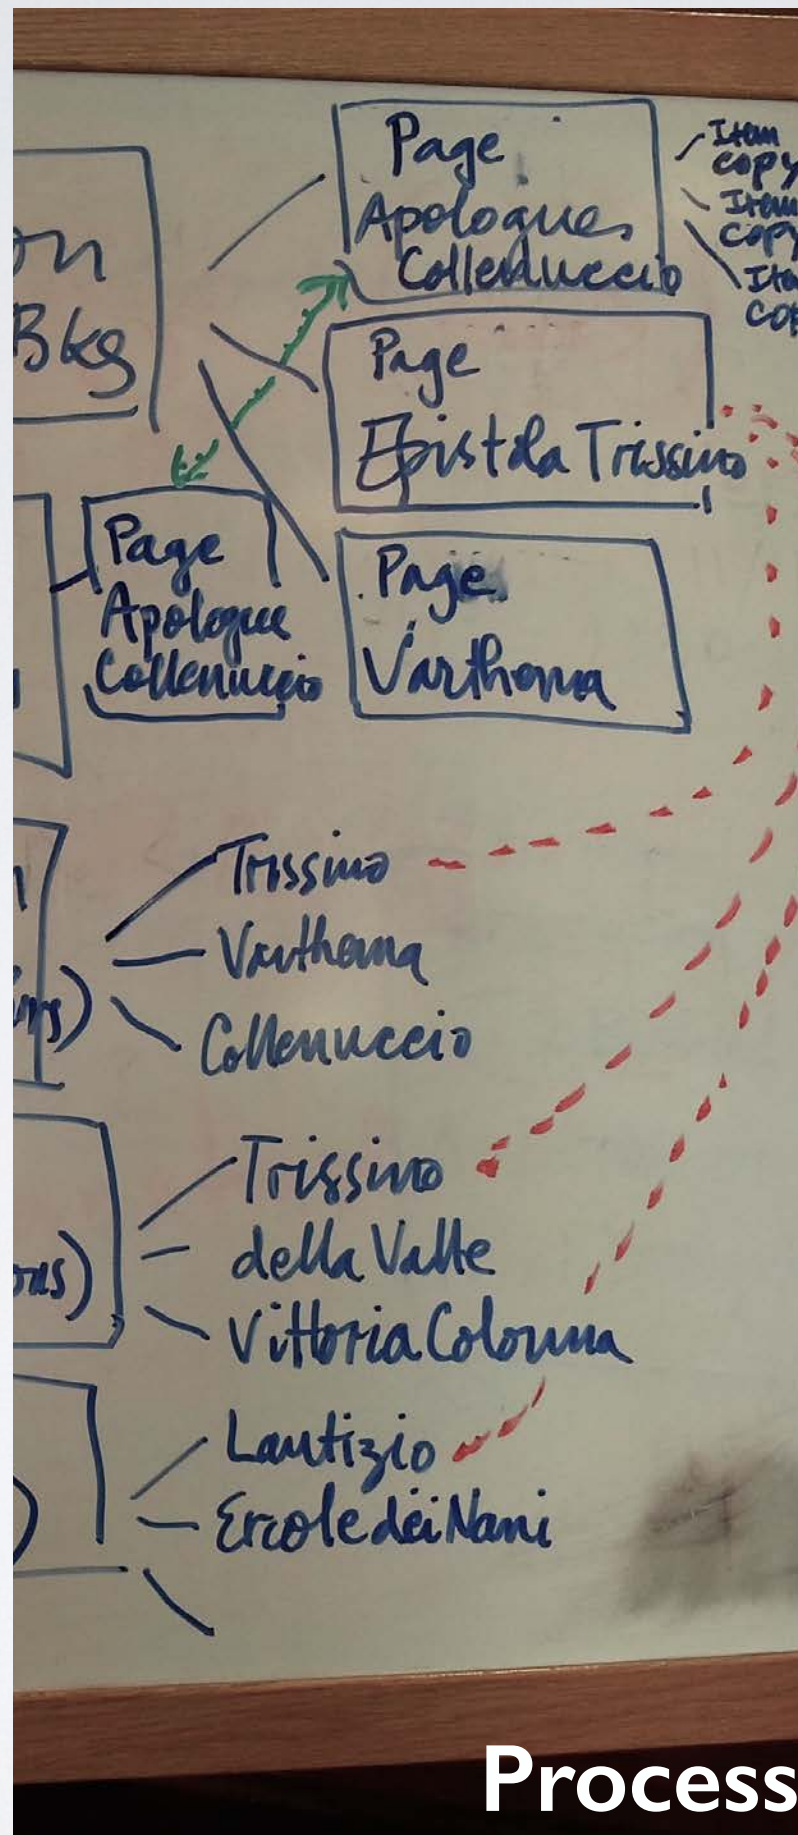 Page
Apologues
Collenuccio
Item
copy
Item
copy
Ite
cop
on
Bkg
Page
Epistola Trissino
Page
Apologue
Collenuccio
Page
Varthema
Trissino
Varthema
Collenuccio
Trissino
della Valle
Vittoria Colonna
Lautizio
Ercole dei Nani
Process